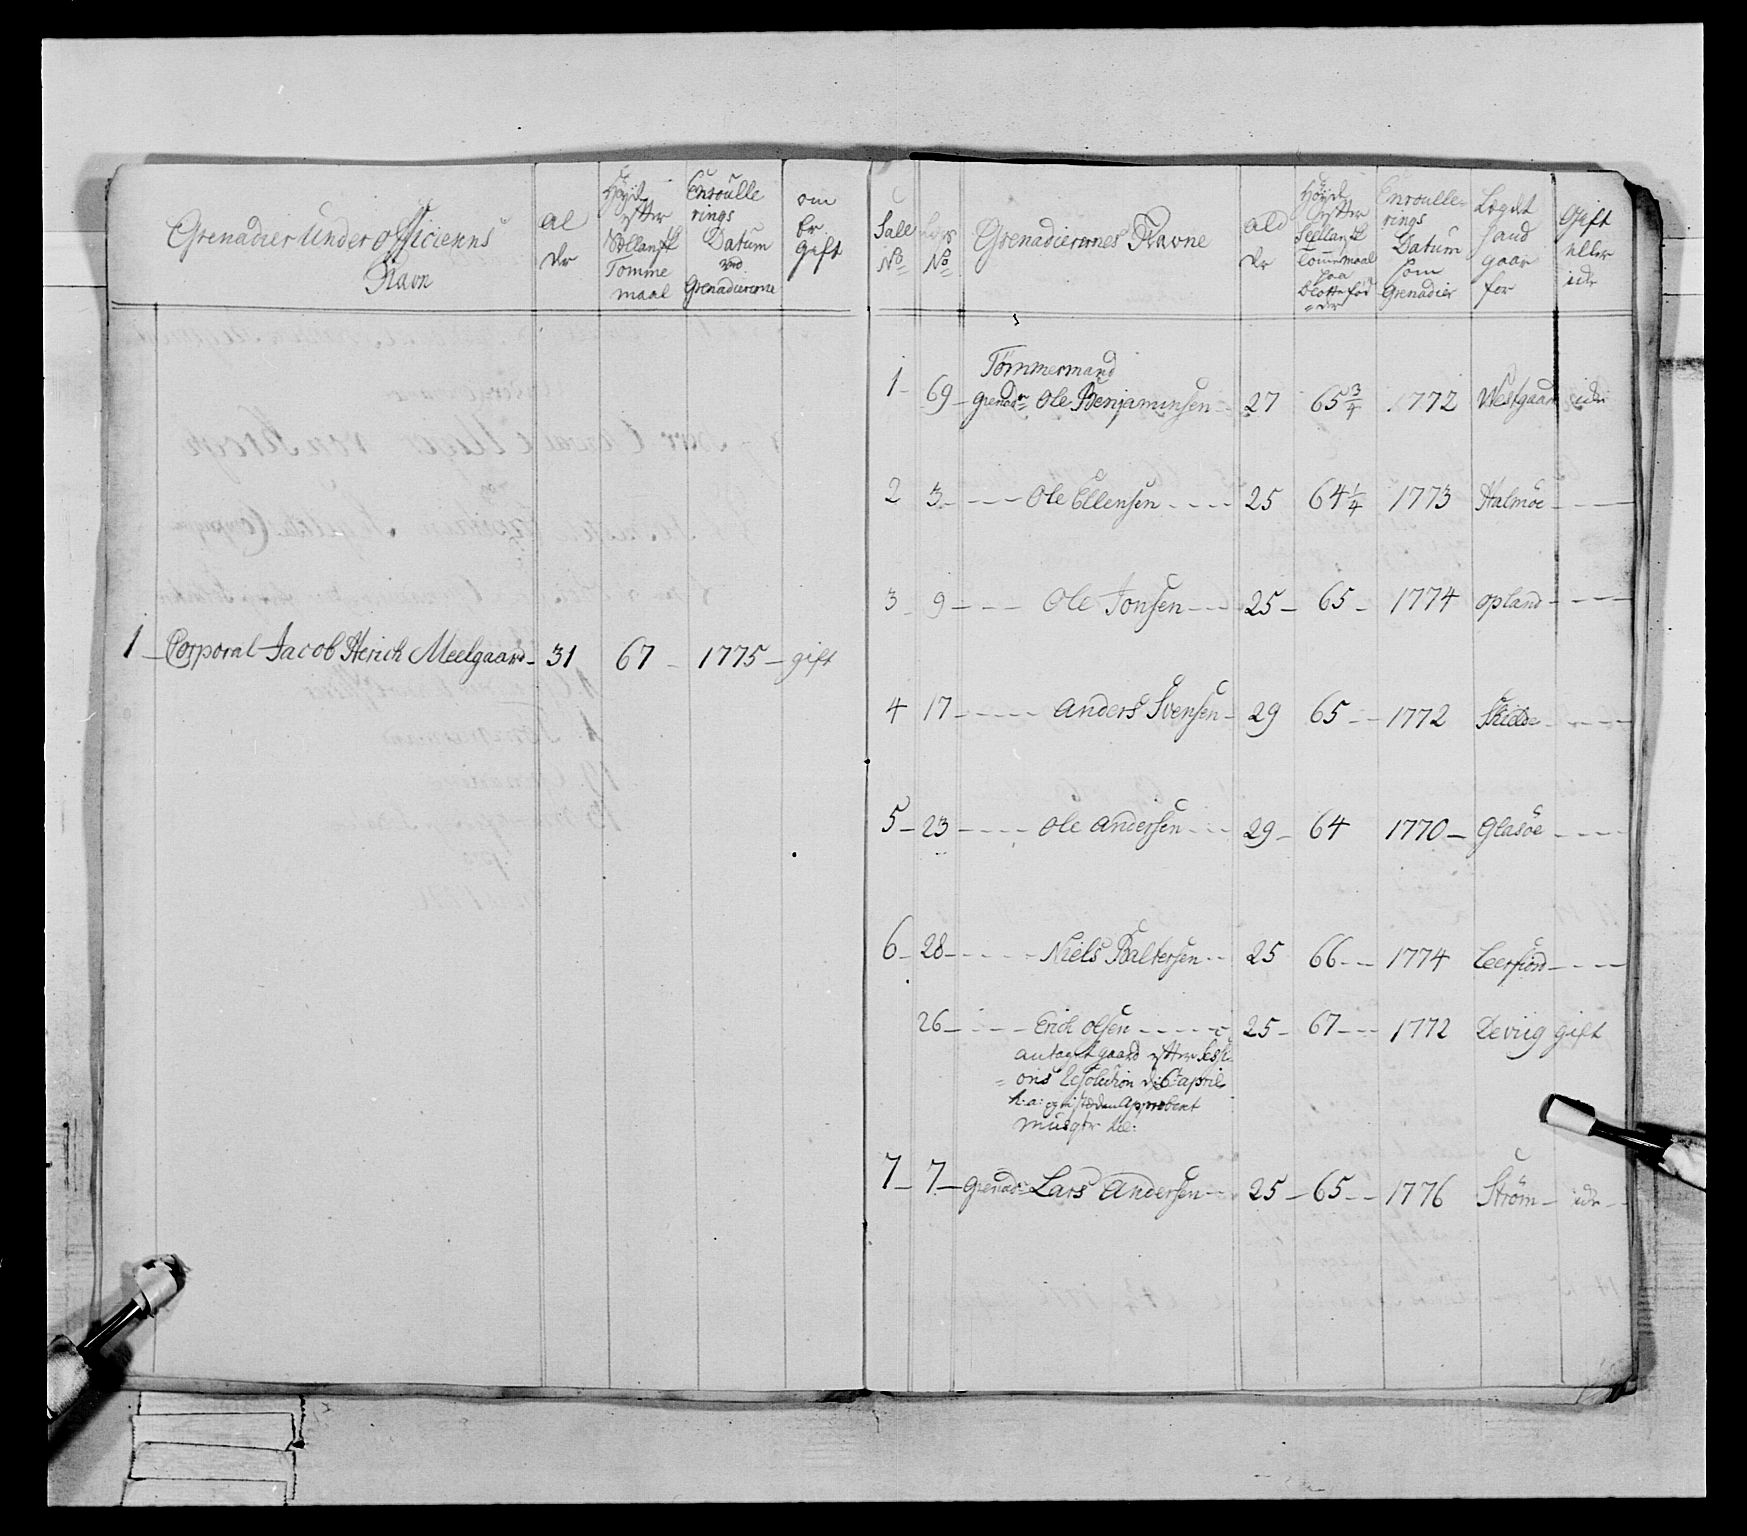 Grenadier Underofficierns
Navn
al
der
Høyde
efter
Siellansk
Tomme
maal
Enroulle
rings
Datum
ved
Grenadiererne
om
er
gift
1 Corporal Jacob Henrich Meelgaard 31 67 1775 gift
Sale
No
Lægs
No
Grenadierernes Navne
ald
er
Høyde
efter
Siellansk
Tommemaal
paa
blotte fød
der
Enroulle
rings
Datum
som
Grenadier
Lægdet
hand
gaar
for
Gift
eller
icke
Tømmermand
1 69 grenadr Ole Benjaminsen 27 65 3/4 1772 Westgaard icke
2 3 Ole Ellensen 25 64 1/4 1773 Halmöe
3 9 Ole Jonsen 25 65 1774 opland
4 17 Anders Svensen 29 65 1772 Skielde
5 23 Ole Andersen 29 64 1770 Glasöe
6 28 Niels Baltersen 25 66 1774 Leerfiord
26 Erich Olsen 25 67 1772 Deviig gift
antaget gaard efter Sessi
ons Resolution d: 6 april
h: a: og i steden Approbert
musqtr til:
7 7 Grenadr Lars Andersen 25 65 1776 Strøm icke